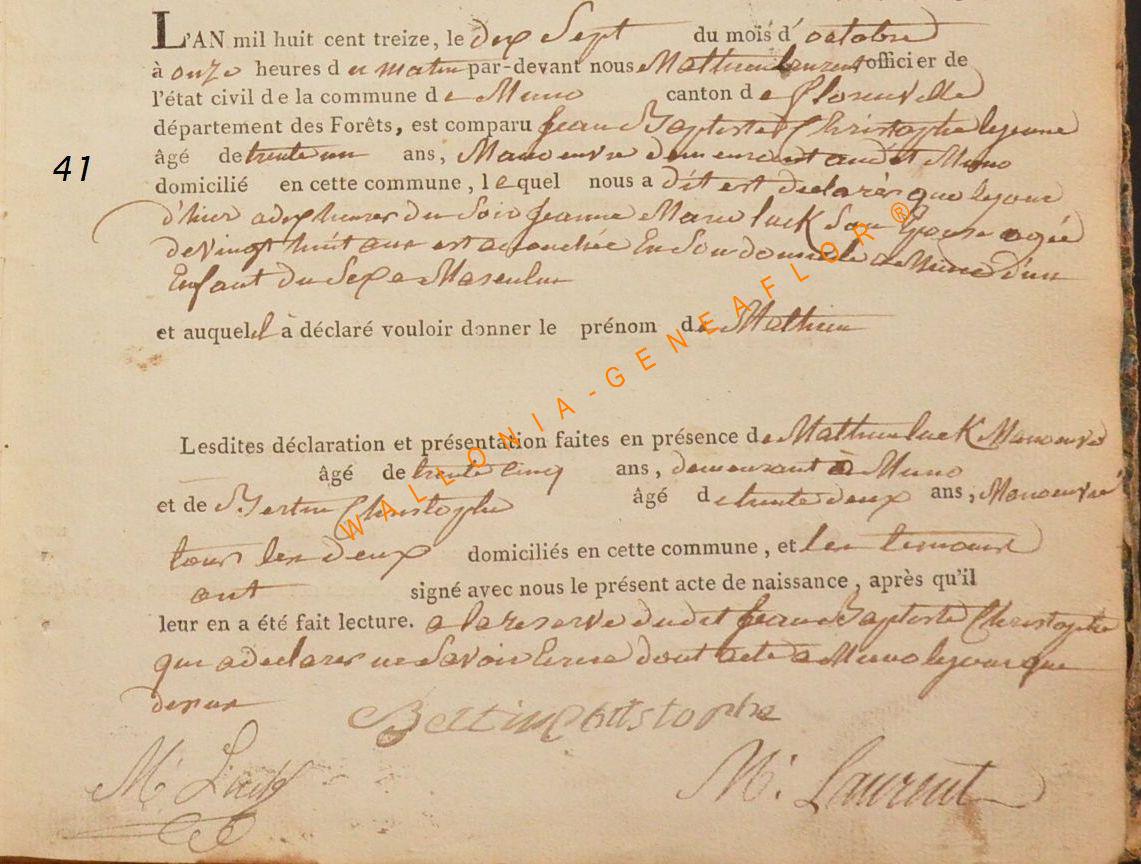 L'AN mil huit cent treize, le dix Sept du mois d'octobre
à onze heures du matin par-devant nous Mathieu Laurent officier de
l'état civil de la commune de Muno canton de florenville
département des Forêts, est comparu jean Baptiste Christophe lejeune
41
âgé de trente un ans, Manoeuvre demeurant audit Muno
domicilié en cette commune, lequel nous a dit est declarèr que lejour
d'hier a dix heures du Soir Jeanne Marie luck Son Epouse agée
de vingt huit ans est accouchée En Son domicile a Muno d'un
Enfant du Sexe Masculin
et auquel il à déclaré vouloir donner le prénom de Mathieu
Lesdites déclaration et présentation faites en présence de Mathieu luck Manoeuvre
âgé de trente cinq ans, demeurant à Muno
et de Bertin Christophe âgé de trente deux ans, Manoeuvre
tous les deux domiciliés en cette commune, et les temoins
ont signé avec nous le présent acte de naissance, après qu'il
leur en a été fait lecture. a la reserve dudit jean Baptiste Christophe
qui a declarer ne Savoir Ecrire dont acte a Muno lejour que
dessus
Bertin Christophe
M. Luck
M. Laurent
WALLONIA-GENEAFLOR ®